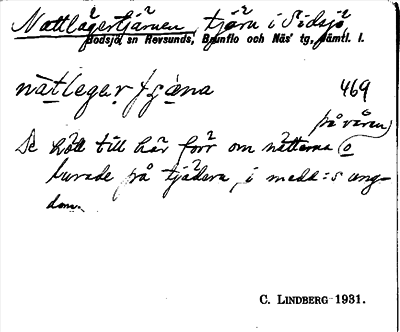 Nattlägertjärnen, tjärn i Sidsjö
Bodsjö sn Revsunds, Brunflo och Näs' tg, Jämtl. l.
469
på våren
De höll till här förr om nätterna o
lurade på tjädern, i medd:s ung-
dom.
C. LINDBERG 1931.